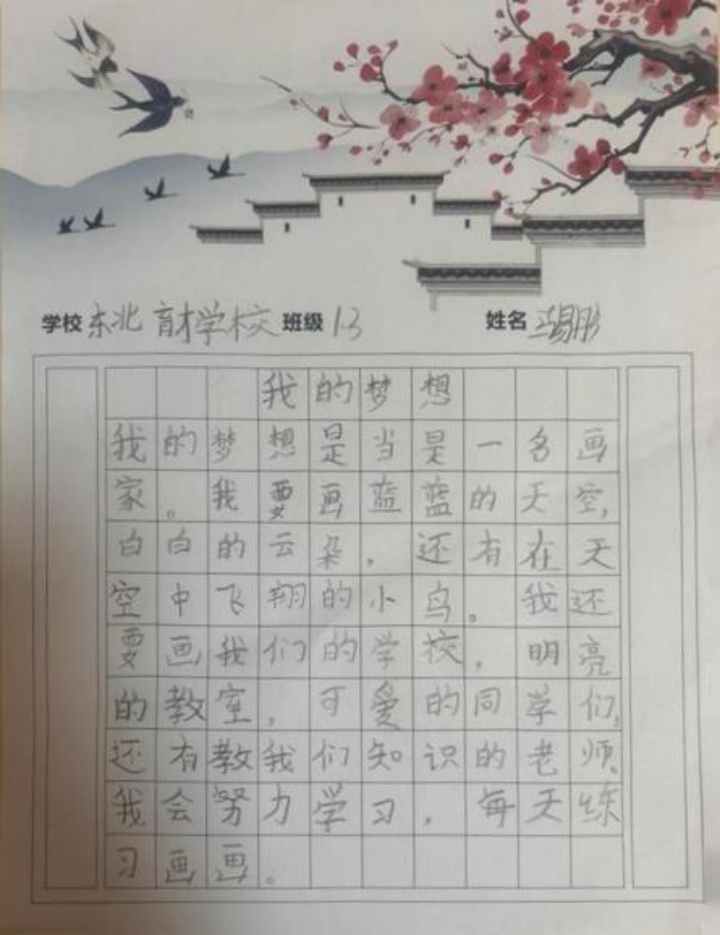 学校 东北育才学校 班级 1-3 姓名
我的梦想
我的梦想是当是一名画
家。我要画蓝蓝的天空,
白白的云朵，还有在天
空中飞翔的小鸟。我还
要画我们的学校，明亮
的教室，可爱的同学们,
还有教我们知识的老师。
我会努力学习，每天练
习画画。